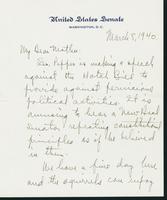 United States Senate
WASHINGTON, D.C.
March 8, 1940.
My Dear Mother.
Sen. Pepper is making a speech
against the Hatch Bill to
provide against pernicious
political activities. It is
amusing to hear a New Deal
Senator repeating constitutional
principles as if he believed
in them.
We have a fine day here
and the squirrels can enjoy